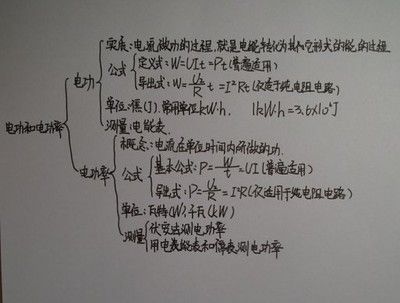 实质:电流做功的过程,就是电能转化为其他形式的能的过程
公式
定义式:W=UIt=Pt(普遍适用)
电功
导出式:W=U²/R t=I²Rt(仅适于纯电阻电路)
单位:焦(J).常用单位kW·h. 1kW·h=3.6×10⁶J
测量:电能表.
电功和电功率
概念:电流在单位时间内所做的功.
电功率
公式
基本公式:P=W/t=UI(普遍适用)
导出式:P=U²/R=I²R(仅适用于纯电阻电路)
单位:瓦特(W).千瓦(kW)
测量
伏安法测电功率
用电能表和停表测电功率